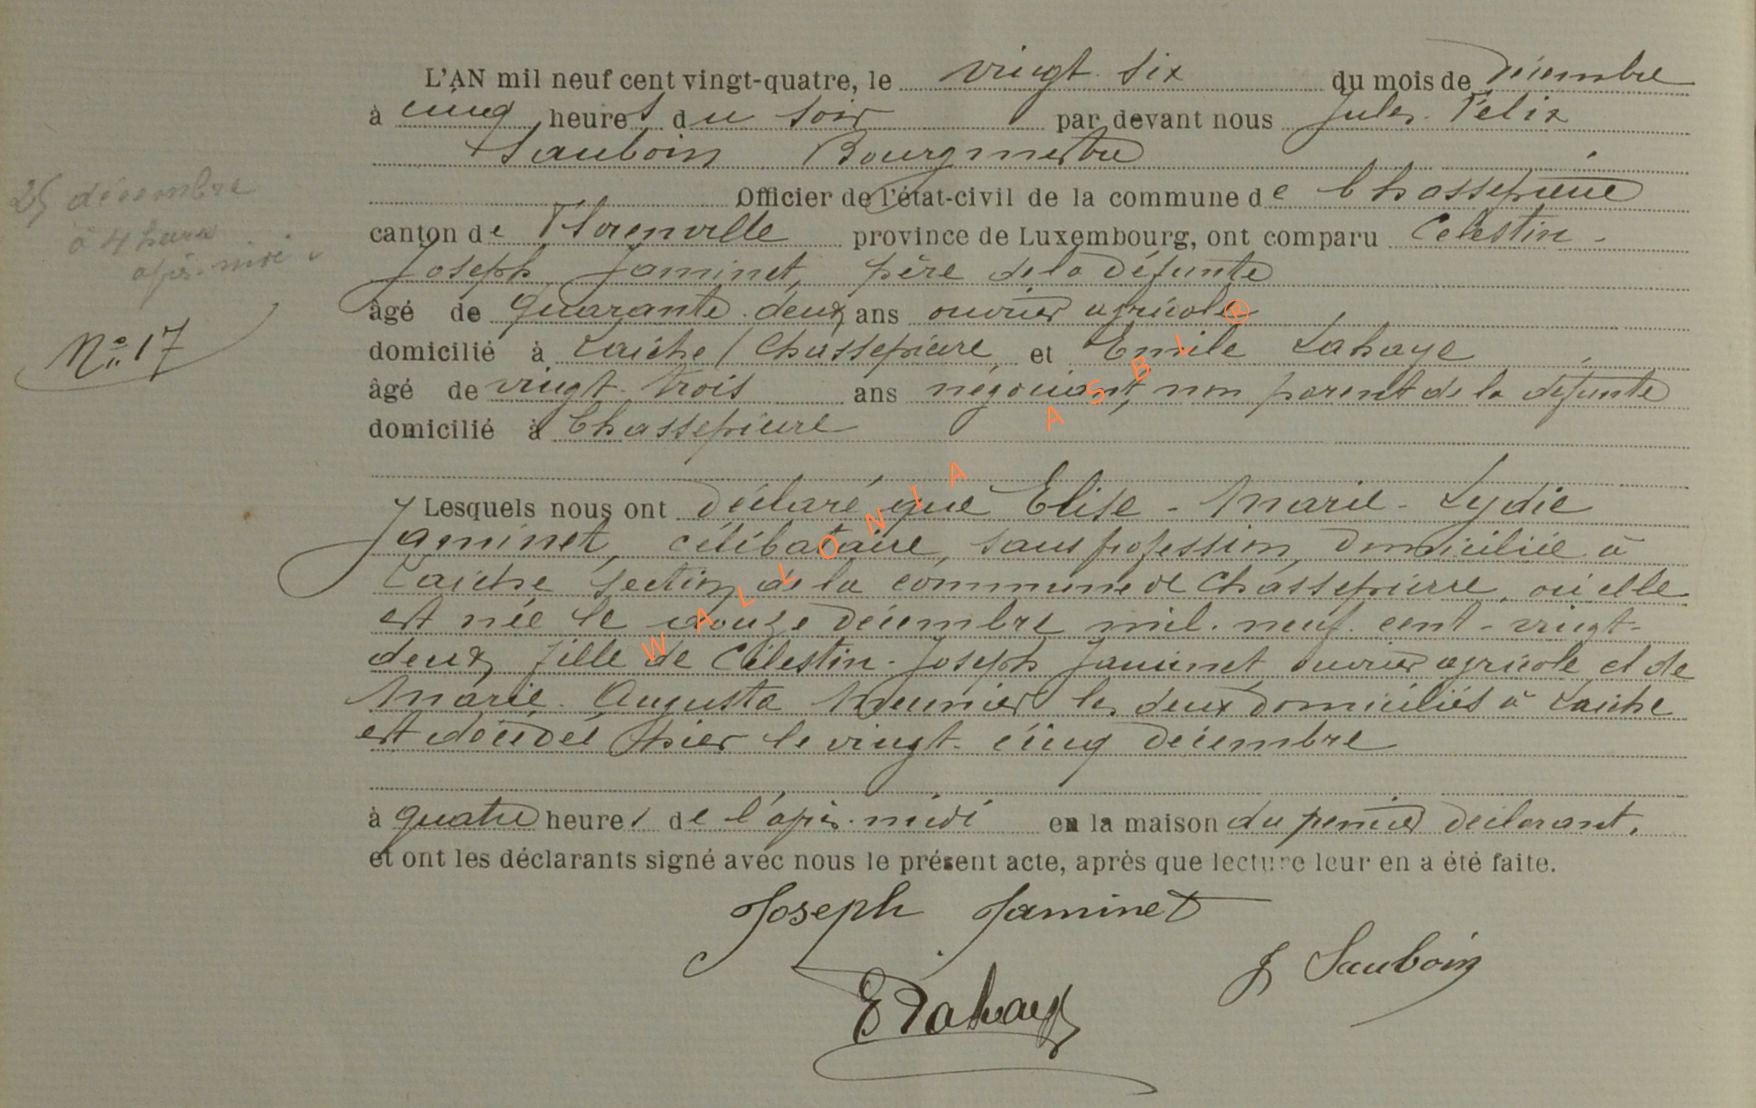 L'AN mil neuf cent vingt-quatre, le vingt six du mois de Décembre
à cinq heures du soir par devant nous Jules Félix
Sauboin Bourgmestre
Officier de l'état-civil de la commune de Chassepierre
canton de Florenville province de Luxembourg, ont comparu Célestin-
Joseph Jaminet, père de la défunte
âgé de quarante-deux ans ouvrier agricole
domicilié à Laiche / Chassepierre et Emile Lahaye
âgé de vingt-trois ans négociant, non parent de la défunte
domicilié à Chassepierre
Lesquels nous ont déclaré que Elise-Marie-Lydie
Jaminet, célibataire, sans profession domiciliée à
Laiche section de la commune de Chassepierre, où elle
est née le douze décembre mil-neuf-cent-vingt-
deux, fille de Célestin-Joseph Jaminet, ouvrier agricole et de
Marie-Augusta Meunier les deux domiciliés à Laiche
est décédée hier le vingt-cinq décembre
à quatre heures de l'après-midi en la maison du premier déclarant.
et ont les déclarants signé avec nous le présent acte, après que lecture leur en a été faite.
Joseph Jaminet
J Sauboin
E Lahaye
25 décembre
à 4 heures
après-midi
No. 17
WALLONIA ASBL ®